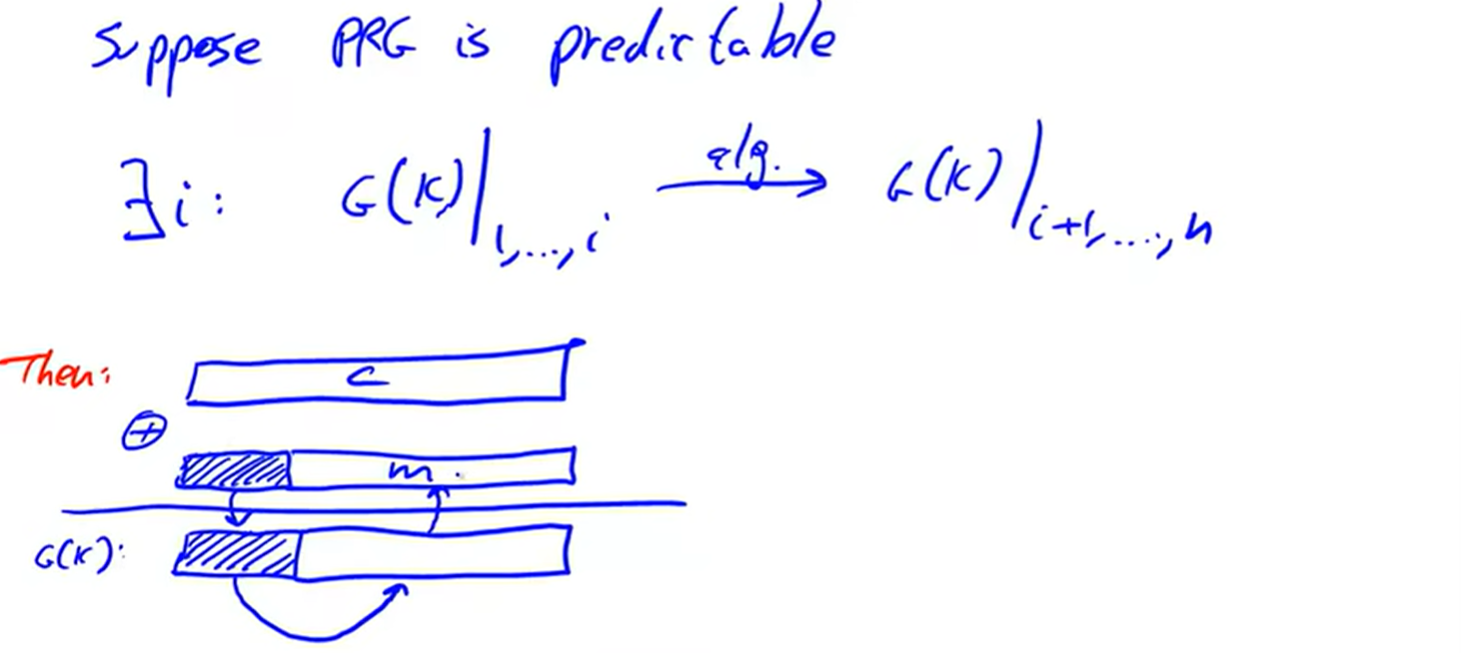 Suppose PRG is predictable
∃i: G(K)|₁,...,ᵢ —alg.→ G(K)|ᵢ₊₁,...,ₙ
Then:
c
⊕
m
G(K):